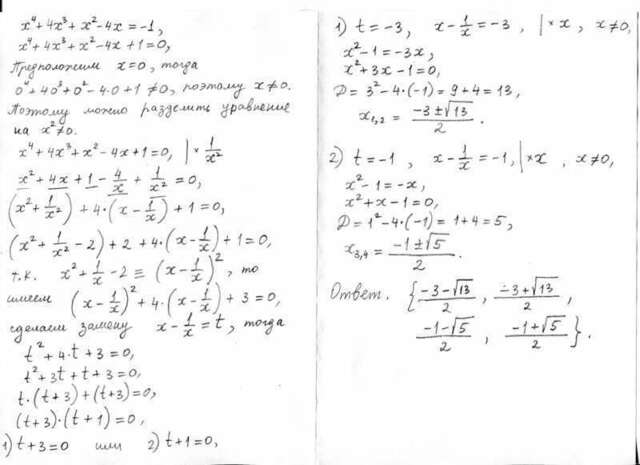 x⁴+4x³+x²-4x=-1,
x⁴+4x³+x²-4x+1=0,
Предположим x=0, тогда
0⁴+4·0³+0²-4·0+1≠0, поэтому x≠0.
Поэтому можно разделить уравнение
на x²≠0.
x⁴+4x³+x²-4x+1=0, |×1/x²
x²+4x+1-4/x+1/x²=0,
(x²+1/x²)+4·(x-1/x)+1=0,
(x²+1/x²-2)+2+4·(x-1/x)+1=0,
т.к. x²+1/x-2≡(x-1/x)², то
имеем (x-1/x)²+4·(x-1/x)+3=0,
сделаем замену x-1/x=t, тогда
t²+4·t+3=0,
t²+3t+t+3=0,
t·(t+3)+(t+3)=0,
(t+3)·(t+1)=0,
1) t+3=0 или 2) t+1=0,
1) t=-3, x-1/x=-3, |×x, x≠0,
x²-1=-3x,
x²+3x-1=0,
D=3²-4·(-1)=9+4=13,
x₁,₂=(-3±√13)/2.
2) t=-1, x-1/x=-1, |×x, x≠0,
x²-1=-x,
x²+x-1=0,
D=1²-4·(-1)=1+4=5,
x₃,₄=(-1±√5)/2.
Ответ. {(-3-√13)/2, (-3+√13)/2,
(-1-√5)/2, (-1+√5)/2}.